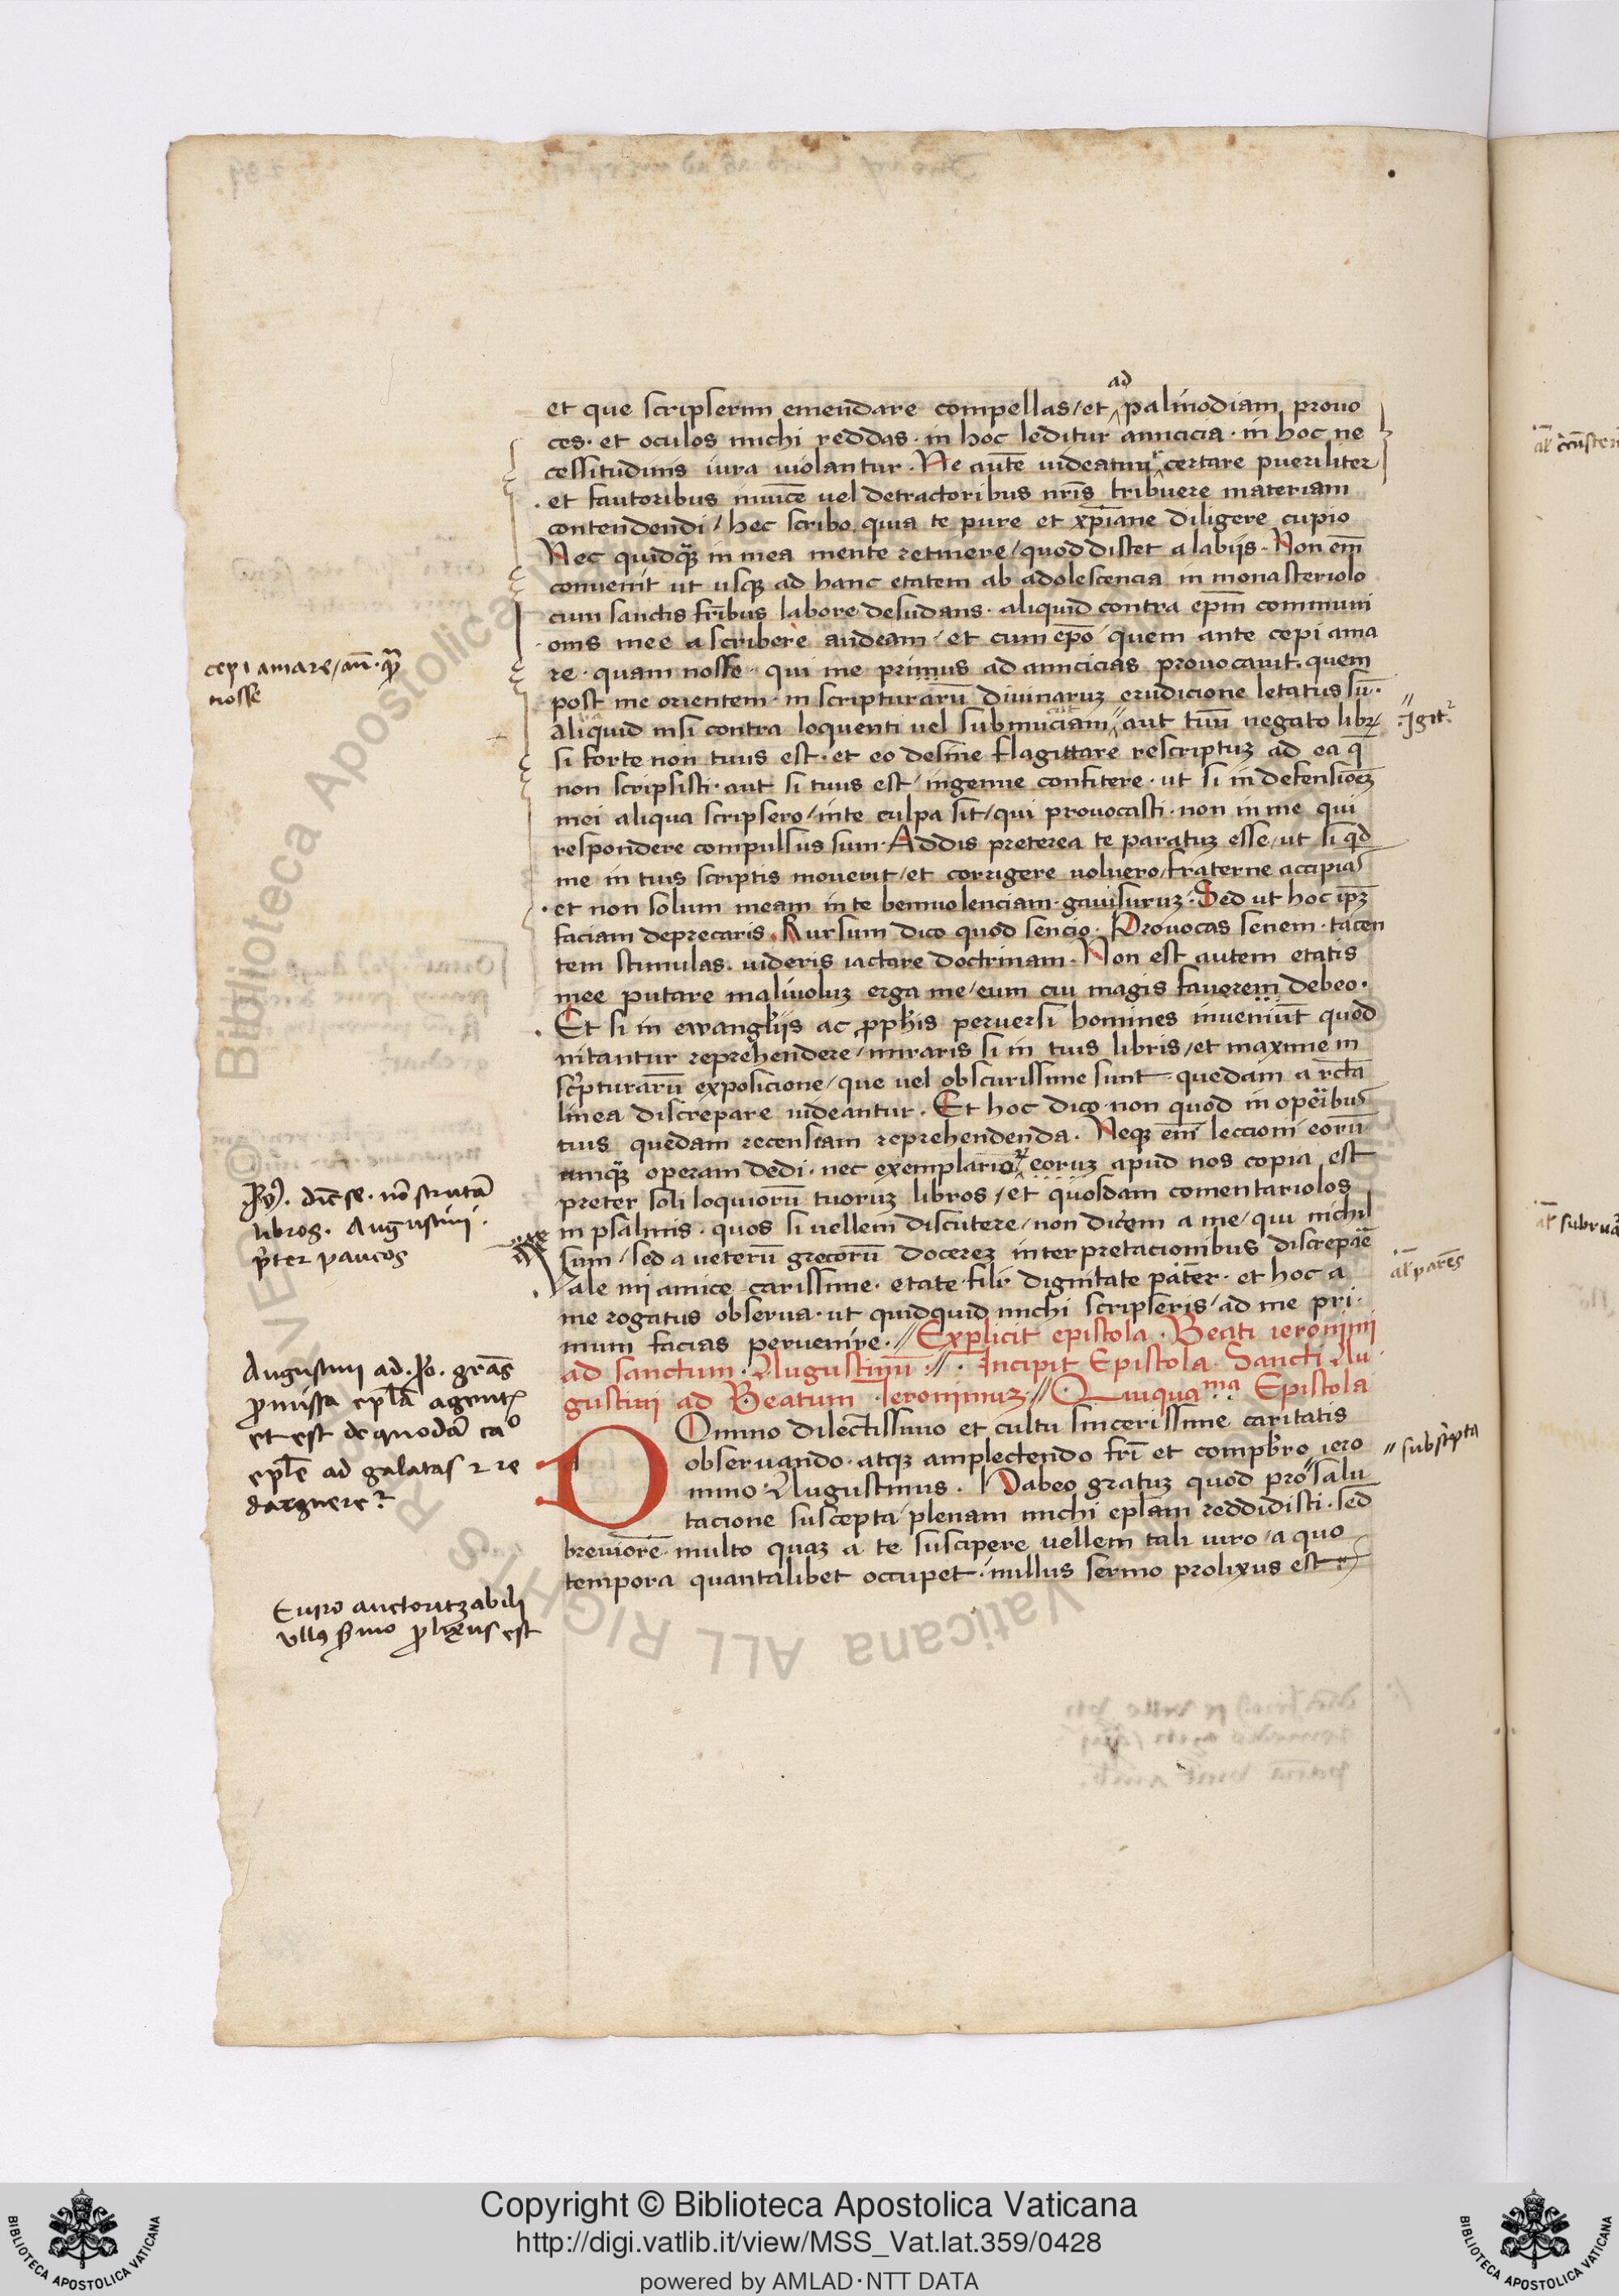 et que scripserim emendare compellas / et ad palinodiam prouo
ces · et oculos michi reddas · in hoc leditur amicicia · in hoc ne
cessitudinis iura uiolantur · Ne aut̄e uideamur certare pueriliter
· et fautoribus inuicē uel detractoribus nr̄is tribuere materiam
contendendi / hec scribo quia te pure et xp̄iane diligere cupio
Nec quidqȝ in mea mente retinere / quod distet a labijs · Non em̄
conuenit ut usqȝ ad hanc etatem ab adolescencia in monasteriolo
cum sanctis fr̄ibus labore desudans · aliquid contra ep̄m communi
onis mee a scribere audeam / et eum ep̄o quem ante cepi ama
re · quam nosse · qui me primus ad amicicias prouocauit · quem
post me orientem · in scripturarū diuinaruȝ erudicione letatus sū ·
aliquid nisi contra loquenti uel submuciam // aut tuū negato libꝝ
si forte non tuus est · et eo desine flagittare rescriptuȝ ad ea q̄
non scripsisti · aut si tuus est / ingenue confitere · ut si in defensiōeȝ
mei aliqua scripsero / inte culpa sit / qui prouocasti · non in me qui
respondere compulsus sum · Addis preterea te paratuȝ esse / ut si qd
me in tuis scriptis mouerit / et corrigere uoluero / fraterne accipias
· et non solum meam in te beniuolenciam · gauisuruȝ · Sed ut hoc ip̄ȝ
faciam deprecaris · Rursum dico quod sencio · Prouocas senem · tacen
tem stimulas · uideris iactare doctrinam · Non est autem etatis
mee putare maliuoluȝ erga me / eum cui magis fauorem debeo ·
· Et si in ewangelijs ac pph̄is peruersi homines inueniūt quod
nitantur reprehendere / miraris si in tuis libris / et maxime in
sc̄pturarū exposicione / que uel obscurissime sunt · quedam a rc̄ta
linea discrepare uideantur · Et hoc dico · non quod in operibus
tuis quedam recensiam reprehendenda · Neqȝ em̄ leccioni eorū
umqȝ operam dedi · nec exemplarioꝝ eoruȝ apud nos copia est
preter soli loquiorū tuoruȝ libros / et quosdam comentariolos
in psalmis · quos si uellem discutere / non dicem a me / qui nichil
sum / sed a ueterū grecorū docereȝ interpretacionibus discrepāe
· Vale mi amice carissime · etate fili · dignitate pater · et hoc a
me rogatus obserua · ut quidquid michi scripseris / ad me pri·
mum facias peruenire · // Explicit epistola · Beati ieronimi
ad sanctum · Augustinū · // · Incipit Epistola · Sancti Au
gustini ad Beatum · Ieronimuȝ · // Quiqua ma Epistola
Domino dilectissimo et cultu sincerissime caritatis
obseruando · atqȝ amplectendo fr̄i et compbr̄o iero
nimo · Augustinus · Habeo gratuȝ quod pro // salu
tacione suscepta / plenam michi ep̄lam reddidisti · sed
breuiorē multo quaȝ a te suscipere uellem tali uiro / a quo
tempora quantalibet occupet · nullus sermo prolixus est
cepi amare / an̄ · qꝫ
nosse
// igit̄
dic̄ se · nō scrutā
libros · Augustini ·
p̄ter paucos
al̄ parēs
Augustini ad · Io · grās
p̄missa ep̄la agentē
et est de quodā ca°
ep̄le ad galatas ⁊ re
darguere
// subsc̄pta
E uiro auctoritzabili
ullꝯ s̄mo p̄lixus est
Copyright © Biblioteca Apostolica Vaticana
http://digi.vatlib.it/view/MSS_Vat.lat.359/0428
powered by AMLAD·NTT DATA
BIBLIOTECA APOSTOLICA VATICANA
BIBLIOTECA APOSTOLICA VATICANA